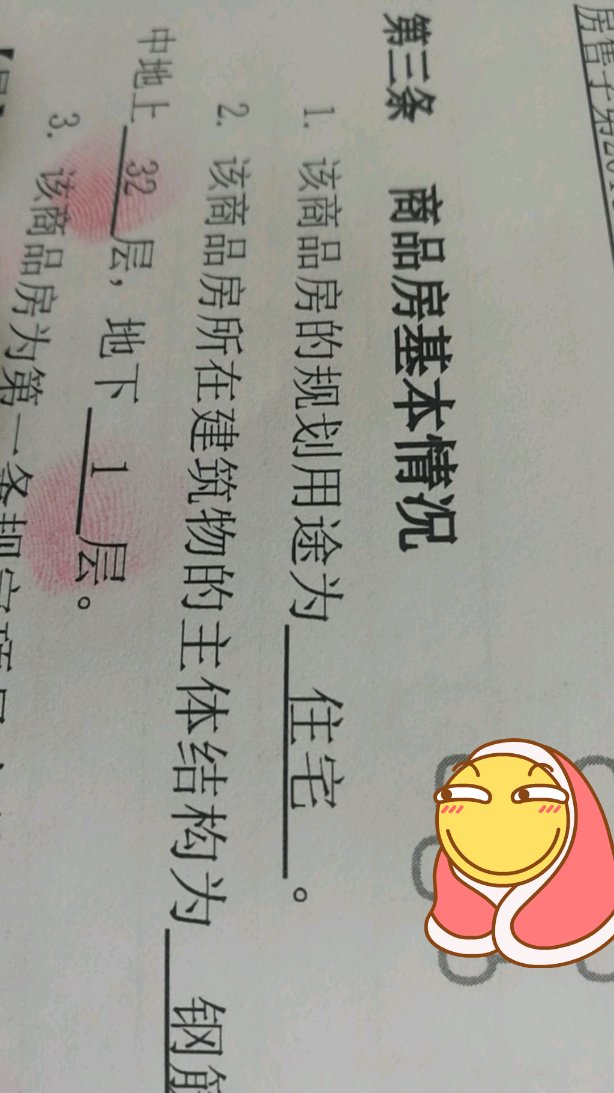 第三条 商品房基本情况
1. 该商品房的规划用途为 住宅 。
2. 该商品房所在建筑物的主体结构为 钢筋
中地上 32 层，地下 1 层。
3. 该商品房为第一条规定